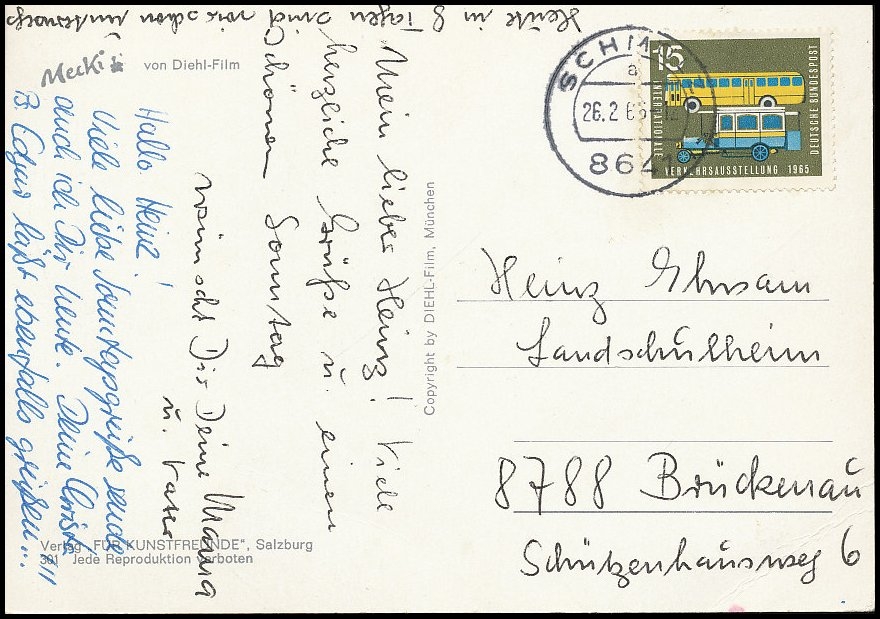 Heute in 8 Tagen sind wir schon unterwegs
Mein lieber Heinz! Viele
herzliche Grüße u. einen
schönen Sonntag
wünscht Dir Deine Mama
u. Vater
Hallo Heinz!
Viele liebe Sonntagsgrüße sendet
auch ich Dir heute. Deine Christa
läßt ebenfalls grüßen...!!!
Mecki
von Diehl-Film
Verlag „FÜR KUNSTFREUNDE“, Salzburg
301 Jede Reproduktion verboten
Copyright by DIEHL-Film, München
26.2.6
8641
15
INTERNATIONALE
VERKEHRSAUSSTELLUNG 1965
DEUTSCHE BUNDESPOST
Heinz Ehrsam
Landschulheim
8788 Brückenau
Schützenhausweg 6